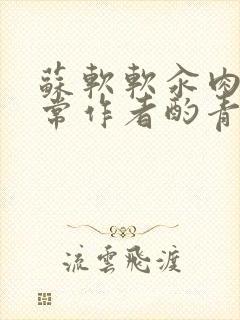 蘇軟軟汆肉
常作者酌青
流雲飛渡